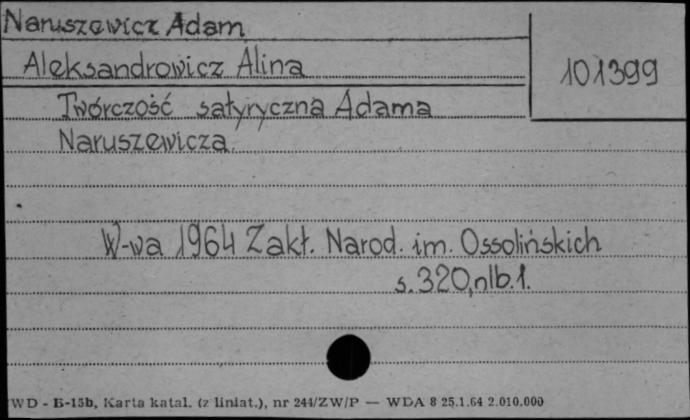 Naruszewicz Adam
Aleksandrowicz Alina
101399
Twórczość satyryczna Adama
Naruszewicza.
W-wa 1964 Zakł. Narod. im. Ossolińskich
s. 320, nlb. 1.
WD - B-15b, Karta katal. (z liniat.), nr 244/ZW/P — WDA 8 25.1.64 2.010.000